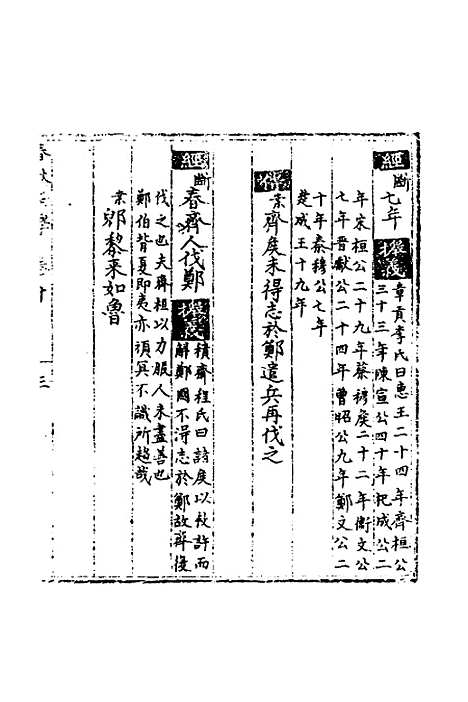 經斷七年 援義 章貢李氏曰惠王二十四年齊桓公
三十三年陳宣公四十年杞成公二
年宋桓公二十九年蔡穆矦二十二年衛文公
七年晉獻公二十四年曹昭公九年鄭文公二
十年秦穆公七年
楚成王十九年
業齊矦未得志於鄭遣兵再伐之
經斷春齊人伐鄭 援義 積齋程氏曰諸矦以救許而
解鄭國不得志於鄭故齊復
伐之也夫齊桓以力服人未盡善也
鄭伯背夏即夷亦頑冥不識所趨哉
業郳黎來如魯
春秋 三